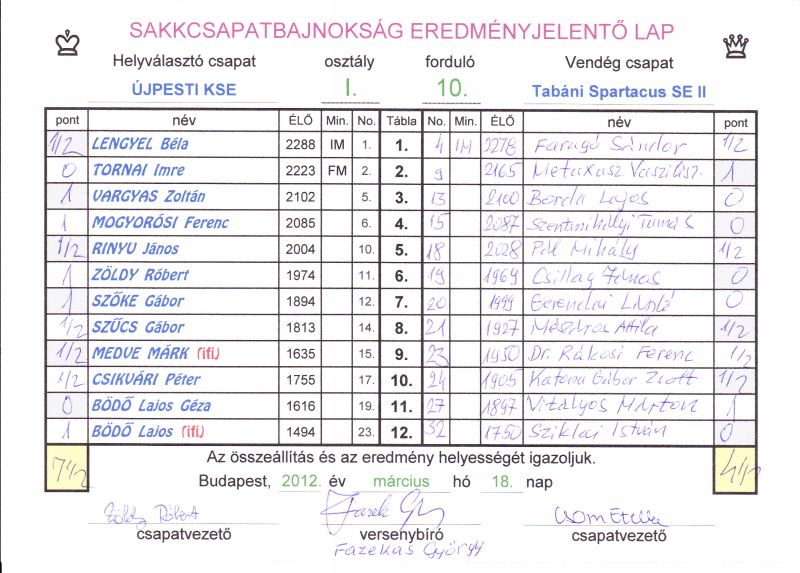 SAKKCSAPATBAJNOKSÁG EREDMÉNYJELENTŐ LAP
Helyválasztó csapat osztály forduló Vendég csapat
ÚJPESTI KSE I. 10. Tabáni Spartacus SE II
pont név ÉLŐ Min. No. Tábla No. Min. ÉLŐ név pont
1/2 LENGYEL Béla 2288 IM 1. 1. 4 IM 2278 Faragó Sándor 1/2
0 TORNAI Imre 2223 FM 2. 2. 9 2165 Metaxasz Vaszilisz. 1
1 VARGYAS Zoltán 2102 5. 3. 13 2100 Borda Lajos 0
1 MOGYORÓSI Ferenc 2085 6. 4. 15 2087 Szentmihályi Tamás 0
1/2 RINYU János 2004 10. 5. 18 2028 Pál Mihály 1/2
1 ZÖLDY Róbert 1974 11. 6. 19 1969 Csillag János 0
1 SZŐKE Gábor 1894 12. 7. 20 1999 László 0
1/2 SZŰCS Gábor 1813 14. 8. 21 1927 Mészáros Attila 1/2
1/2 MEDVE MÁRK (ifi) 1635 15. 9. 23 1950 Dr. Rákosi Ferenc 1/2
1/2 CSIKVÁRI Péter 1755 17. 10. 24 1905 Katona Gábor Zsolt 1/2
0 BÖDŐ Lajos Géza 1616 19. 11. 27 1897 Vitályos Márton 1
1 BÖDŐ Lajos (ifi) 1494 23. 12. 32 1750 Sziklai István 0
7 1/2 Az összeállítás és az eredmény helyességét igazoljuk. 4 1/2
Budapest, 2012. év március hó 18. nap
Zöldy Róbert
csapatvezető versenybíró csapatvezető
Fazekas György